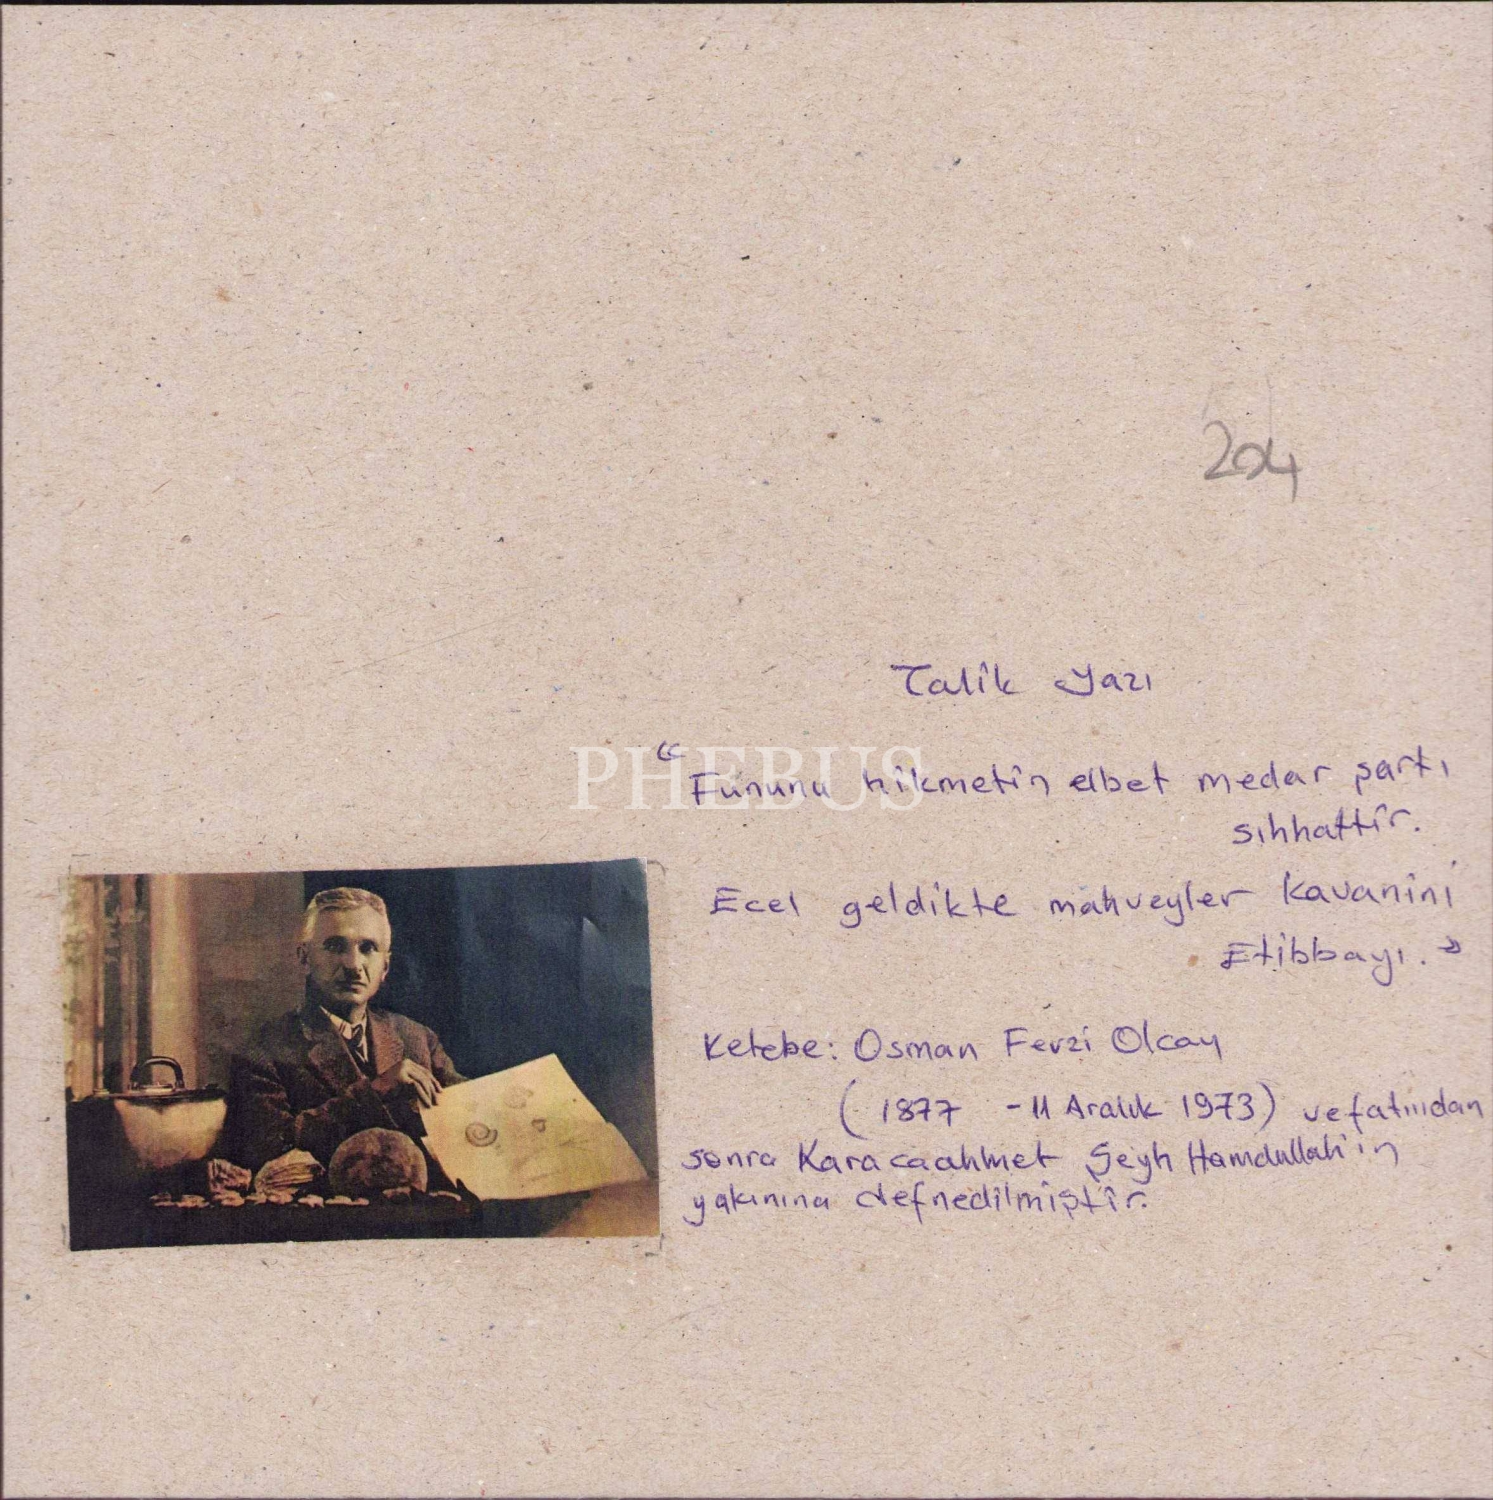 204
Talik Yazı
PHEBUS
"Fununu hikmetin elbet medar şartı
sıhhattir.
Ecel geldikte mahveyler kavanini
Etibbayı."
Ketebe: Osman Fevzi Olcay
(1877 - 11 Aralık 1973) vefatından
sonra Karacaahmet Şeyh Hamdullah'ın
yakınına defnedilmiştir.